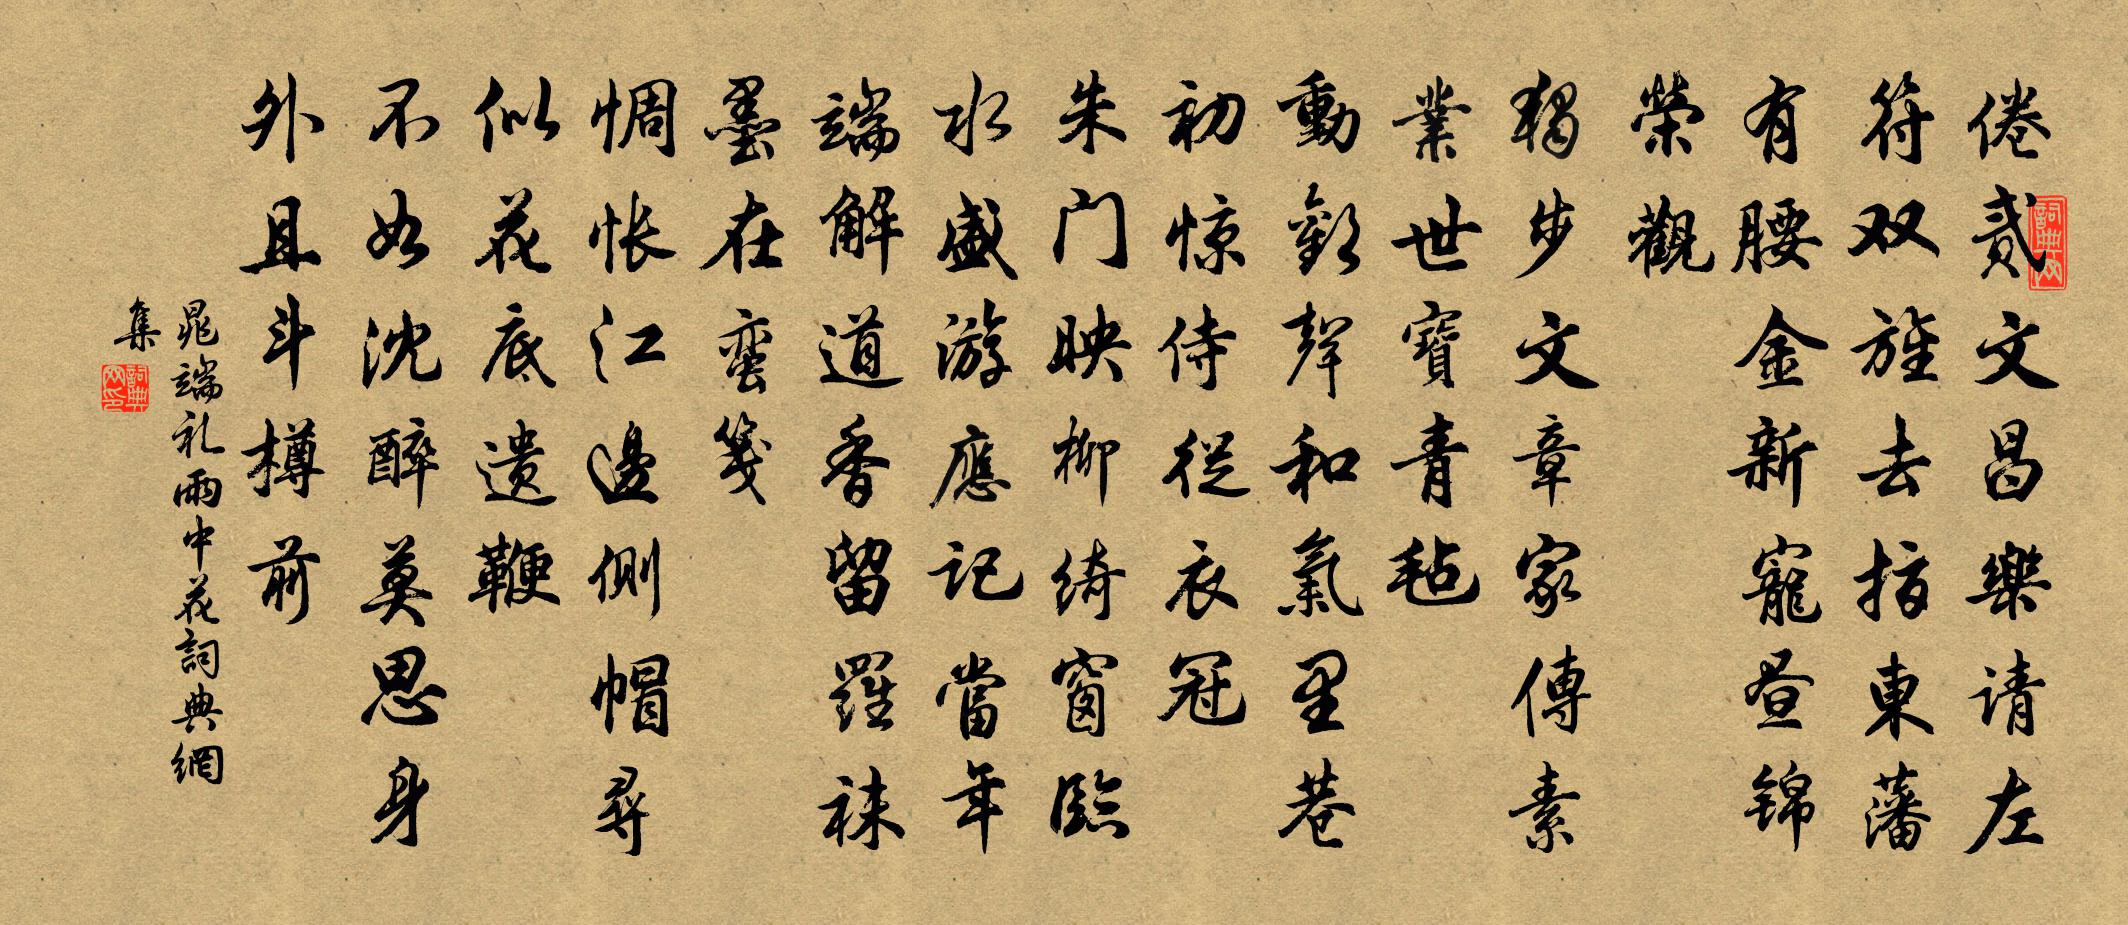 倦贰文昌樂请左
符双旌去指東藩
有腰金新寵昼锦
榮觀
獨步文章家傳素
業世寶青毡
動歡聲和氣里巷
初惊侍從衣冠
朱门映柳绮窗臨
水盛游應记當年
端解道香留羅袜
墨在蛮笺
惆怅江邊侧帽尋
似花底遗鞭
不如沈醉莫思身
外且斗樽前
晁端礼雨中花詞典網
集
詞典网
詞典网印